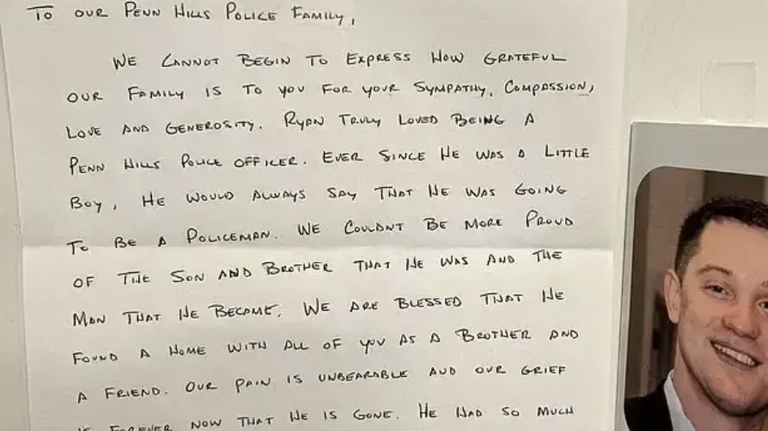 TO OUR PENN HILLS POLICE FAMILY,
WE CANNOT BEGIN TO EXPRESS HOW GRATEFUL
OUR FAMILY IS TO YOU FOR YOUR SYMPATHY, COMPASSION,
LOVE AND GENEROSITY. RYAN TRULY LOVED BEING A
PENN HILLS POLICE OFFICER. EVER SINCE HE WAS A LITTLE
BOY, HE WOULD ALWAYS SAY THAT HE WAS GOING
TO BE A POLICEMAN. WE COULDNT BE MORE PROUD
OF THE SON AND BROTHER THAT HE WAS AND THE
MAN THAT HE BECAME. WE ARE BLESSED THAT HE
FOUND A HOME WITH ALL OF YOU AS A BROTHER AND
A FRIEND. OUR PAIN IS UNBEARABLE AND OUR GRIEF
IS FOREVER NOW THAT HE IS GONE. HE HAD SO MUCH